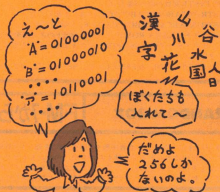 え〜と
'A'=01000001
'B'=01000010
.....
'ア'=10110001
....
漢字
山川花
谷水国
人日
ぼくたちも
入れて〜
だめよ
256しか
ないのよ。